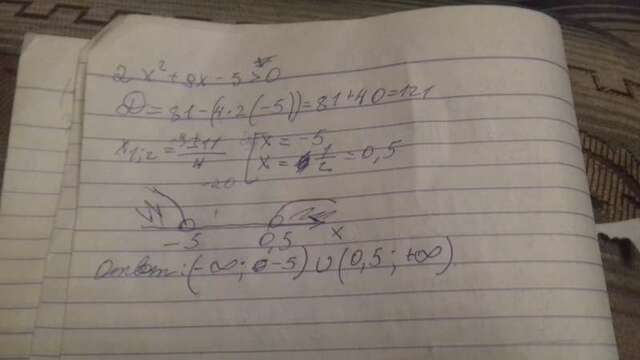 2x² + 9x - 5 > 0
D = 81 - (4·2(-5)) = 81 + 40 = 121
x₁,₂ = -9±11/4 [x = -5
x = 1/2 = 0,5
-20
-5 0,5 x
Ответ: (-∞; -5) ∪ (0,5; +∞)